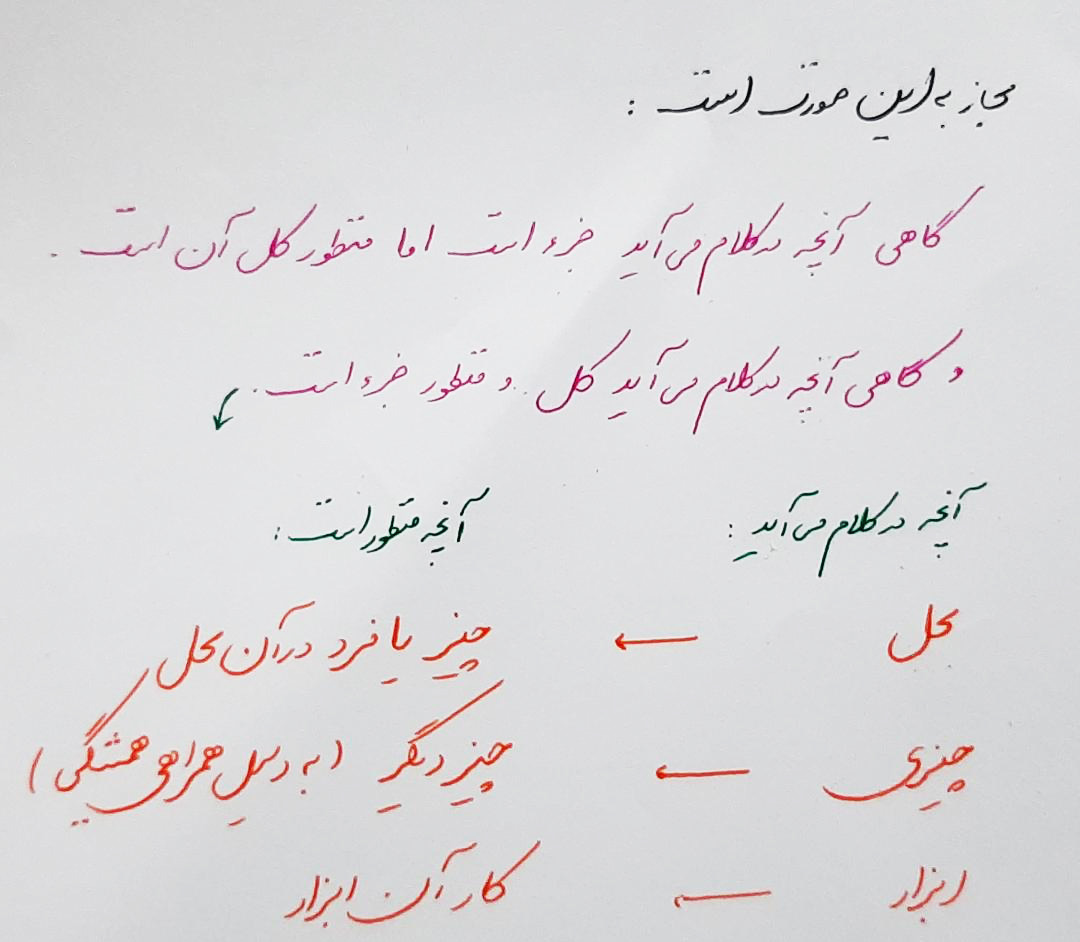 مجاز به این صورت است :
گاهی آنچه در کلام می آید جزء است اما منظور کل آن است .
و گاهی آنچه در کلام می آید کل و منظور جزء است .
آنچه در کلام می آید : آنچه منظور است :
محل ← چیز یا فرد در آن محل
چیزی ← چیز دیگر ( به دلیل همراهی همیشگی )
ابزار ← کار آن ابزار